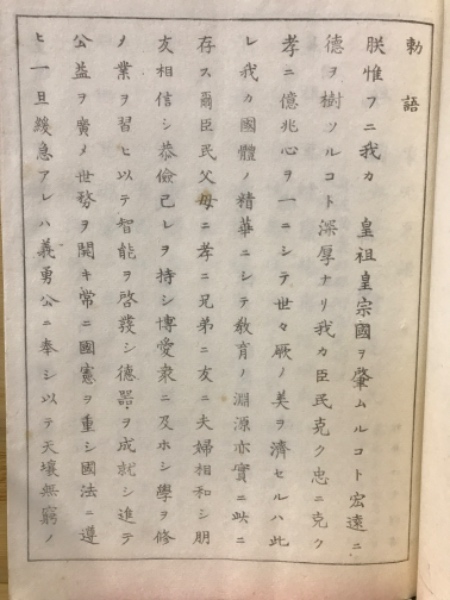 勅語
朕惟フニ我カ　皇祖皇宗國ヲ肇ムルコト宏遠ニ
德ヲ樹ツルコト深厚ナリ我カ臣民克ク忠ニ克ク
孝ニ億兆心ヲ一ニシテ世々厥ノ美ヲ濟セルハ此
レ我カ國體ノ精華ニシテ敎育ノ淵源亦實ニ此ニ
存ス爾臣民父母ニ孝ニ兄弟ニ友ニ夫婦相和シ朋
友相信シ恭儉己レヲ持シ博愛衆ニ及ホシ學ヲ修
メ業ヲ習ヒ以テ智能ヲ啓發シ德器ヲ成就シ進テ
公益ヲ廣メ世務ヲ開キ常ニ國憲ヲ重シ國法ニ遵
ヒ一旦緩急アレハ義勇公ニ奉シ以テ天壤無窮ノ